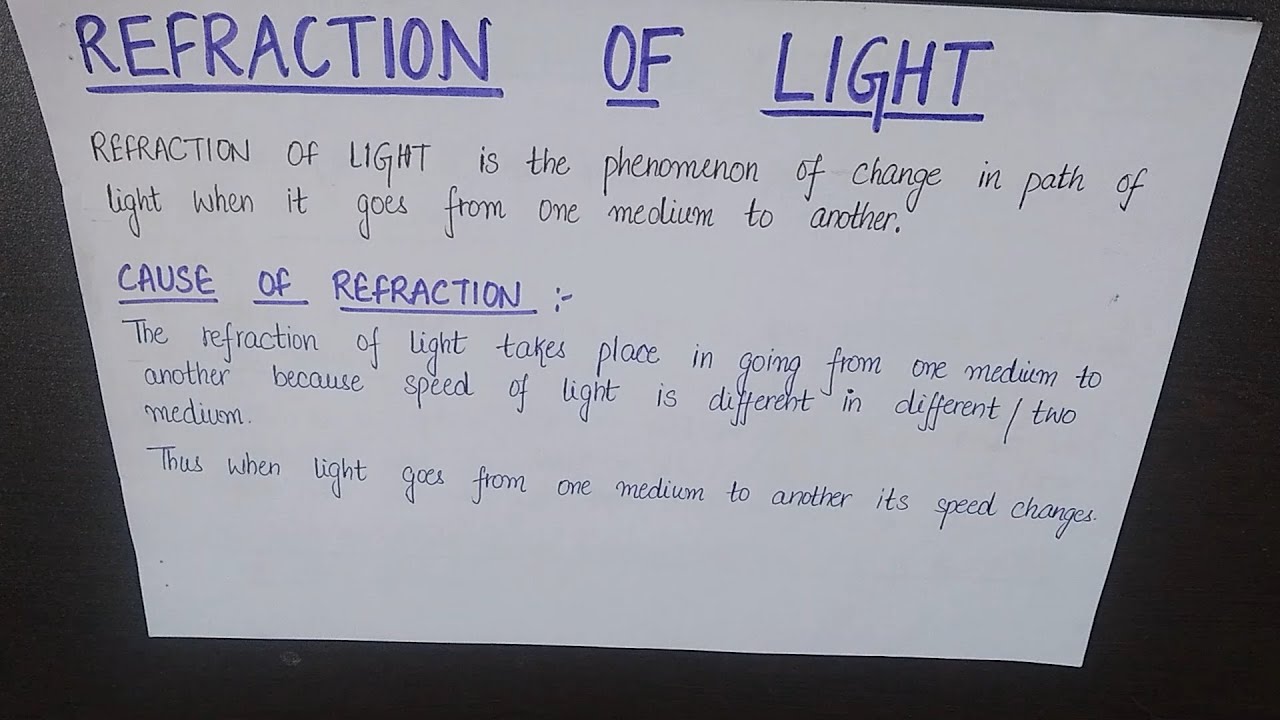 REFRACTION OF LIGHT
REFRACTION OF LIGHT is the phenomenon of change in path of
light when it goes from one medium to another.
CAUSE OF REFRACTION :-
The refraction of light takes place in going from one medium to
another because speed of light is different in different / two
medium.
Thus when light goes from one medium to another its speed changes.